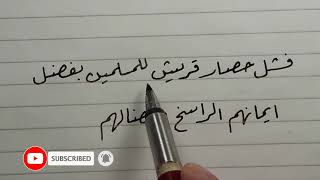 فشل حصار قريش للمسلمين بفضل
ايمانهم الراسخ
SUBSCRIBED